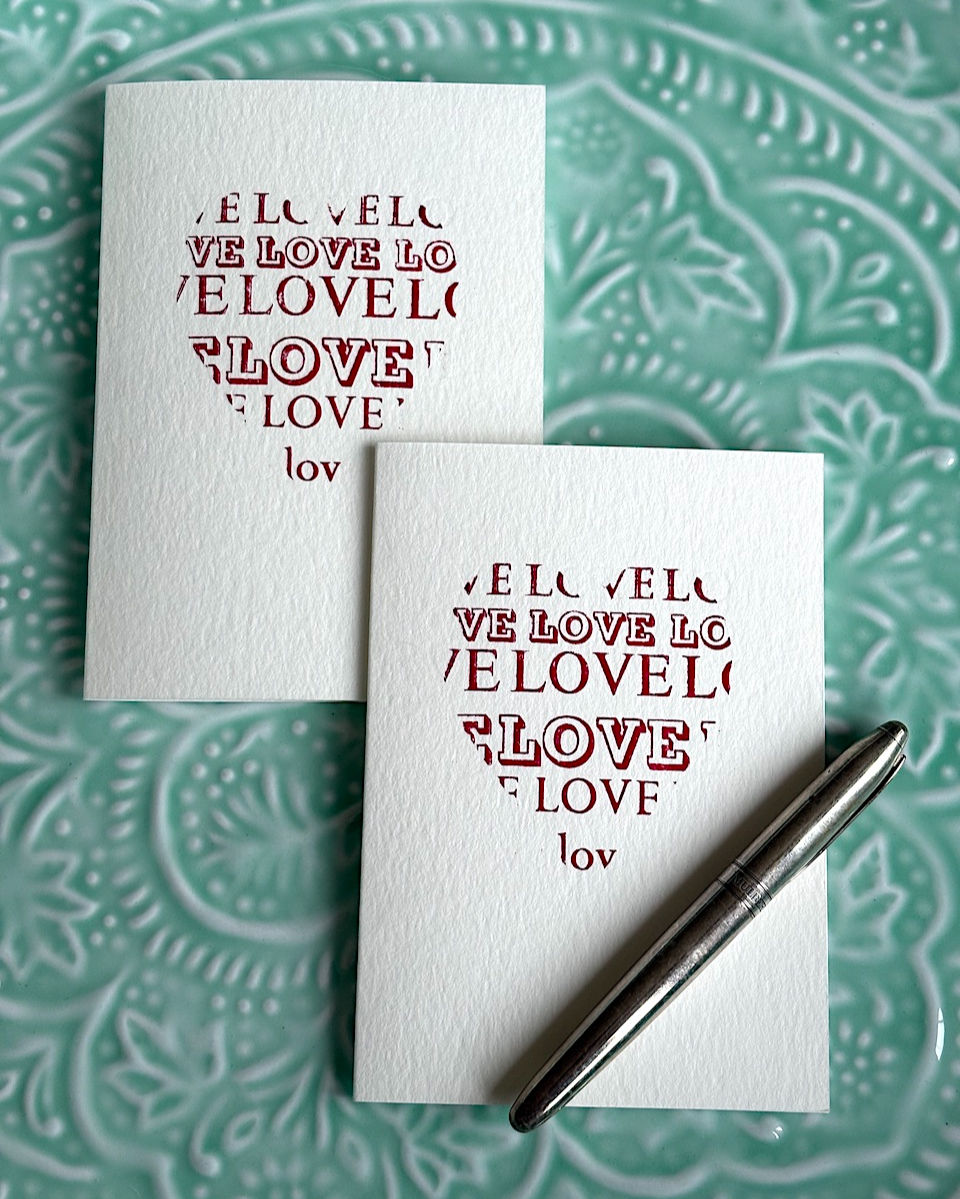 VE LO VE LO
VE LOVE LO
VE LOVE LO
E LOVE L
E LOVE
lov
VE LO VE LO
VE LOVE LO
VE LOVE LO
E LOVE L
E LOVE
lov